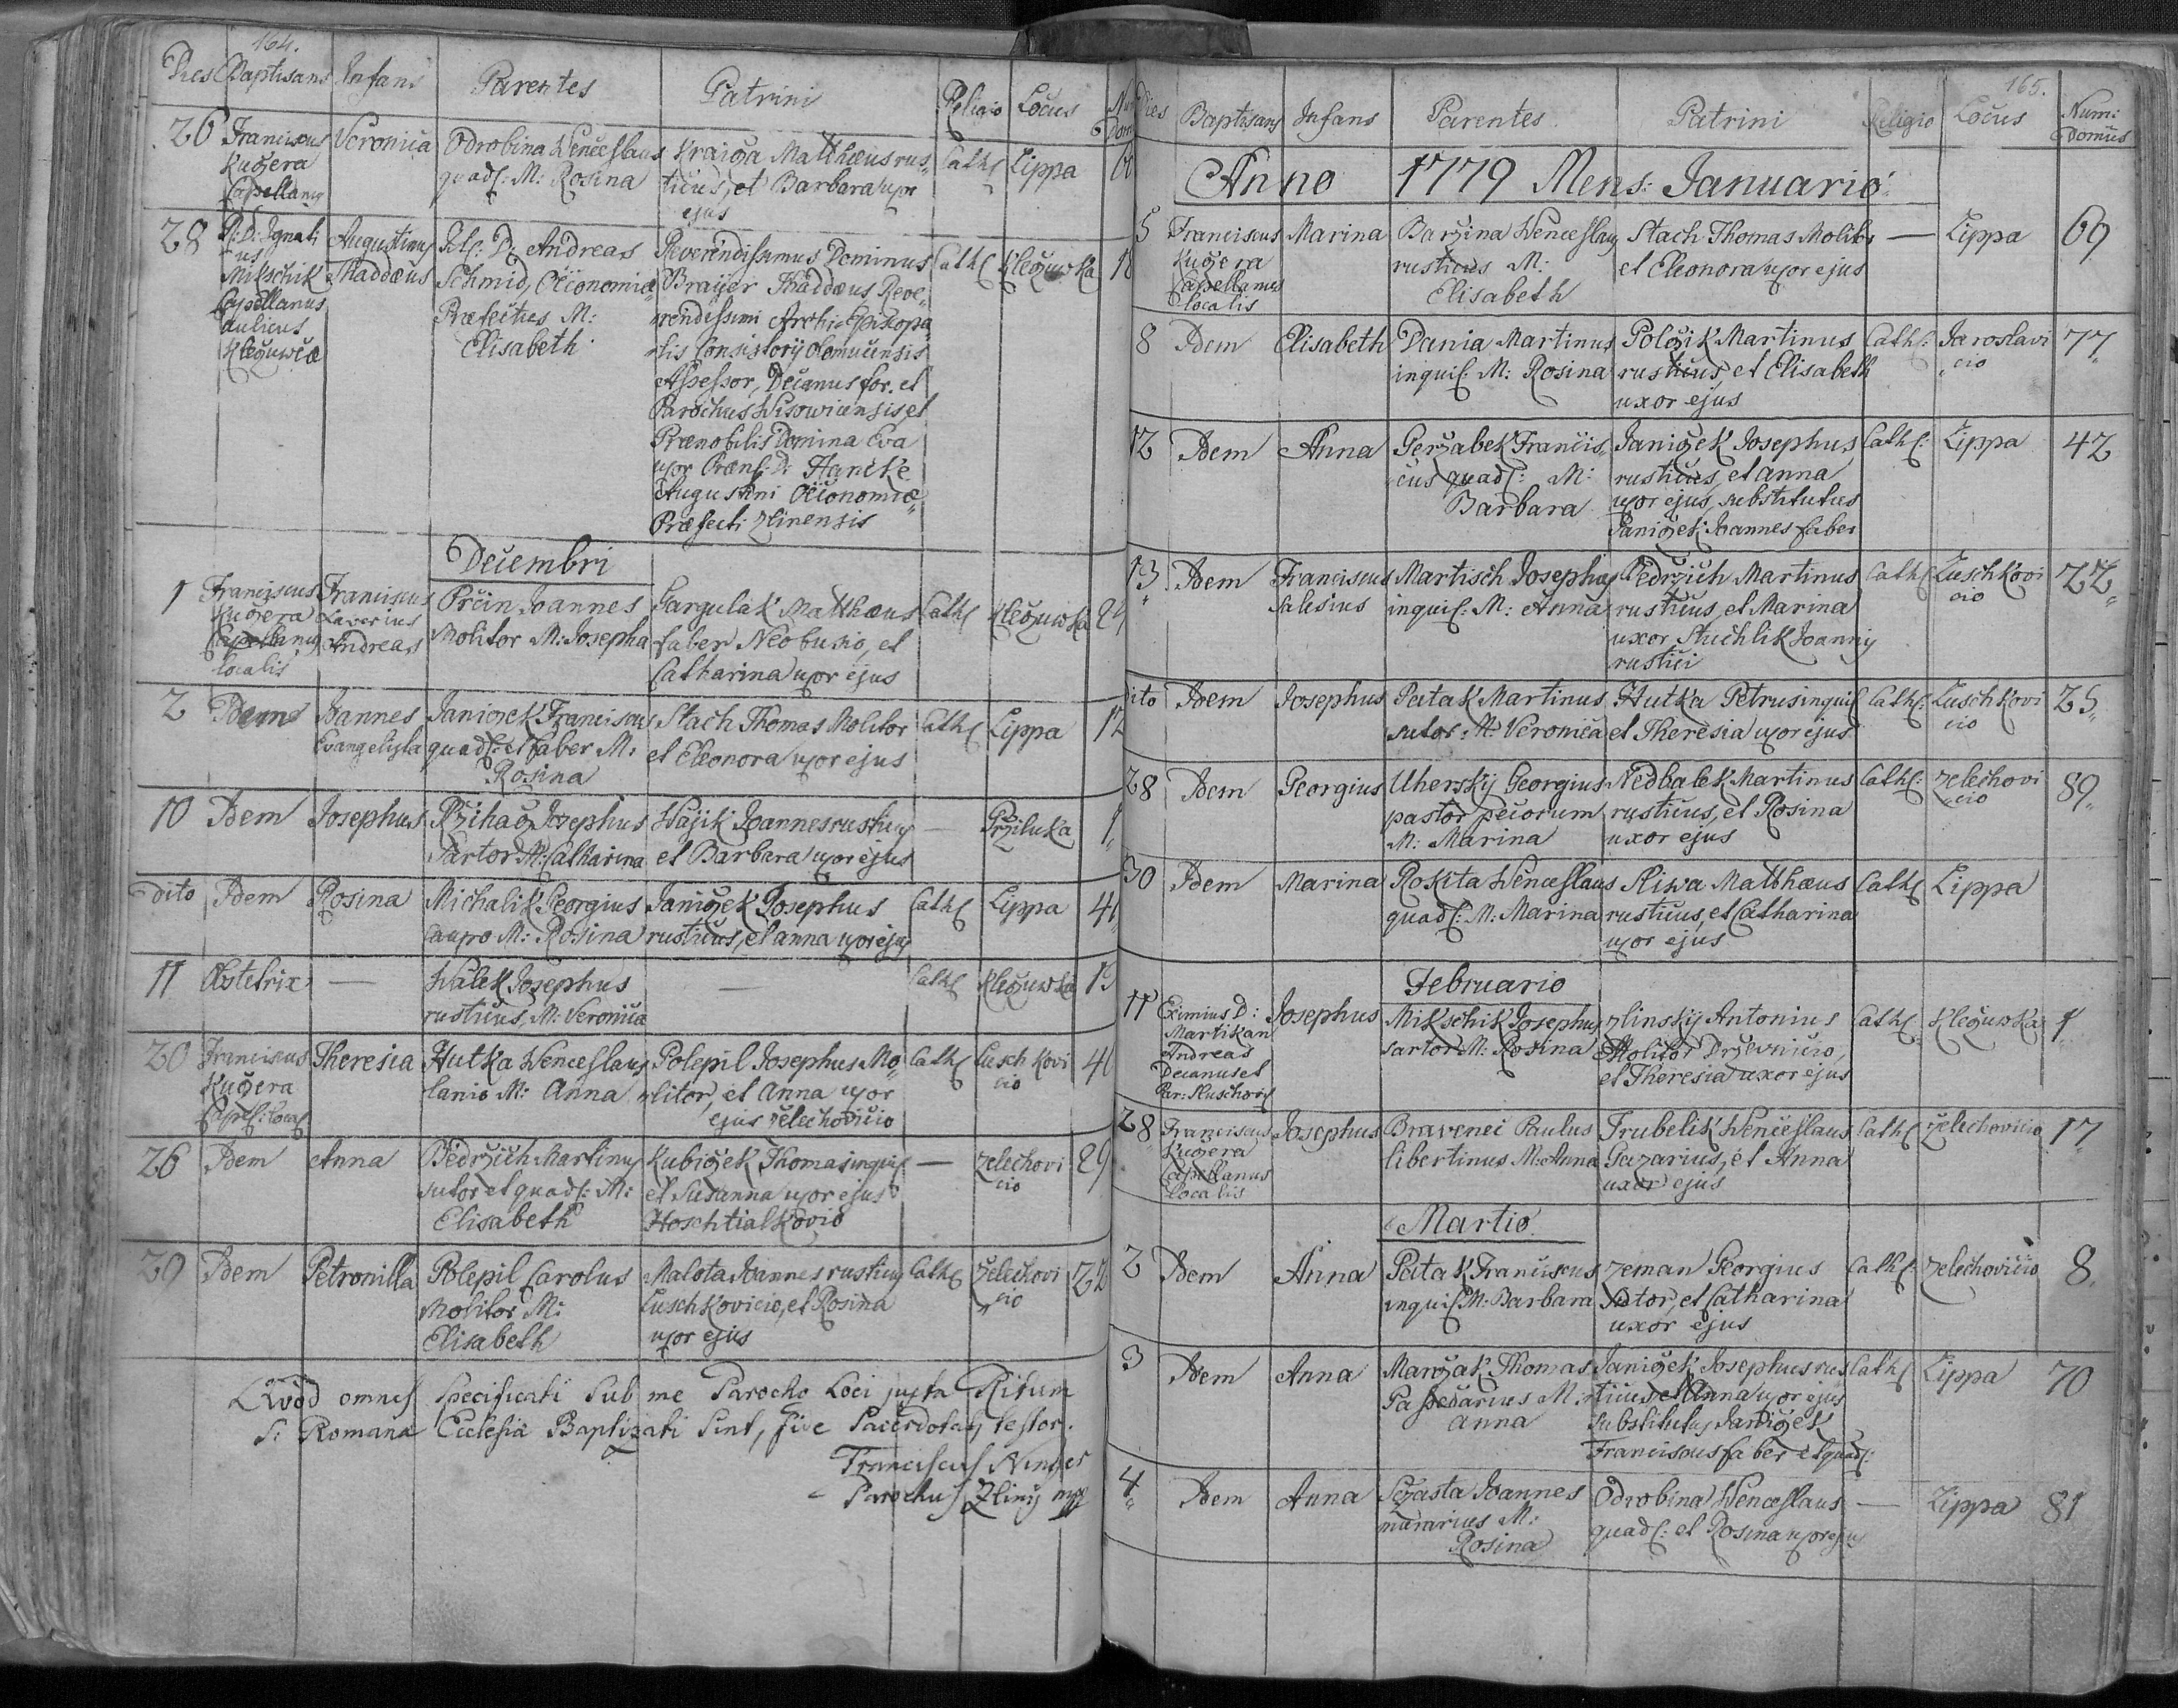 164.
Dies Baptisans Infans Parentes Patrini Religio Locus
26 Franciscus Veronica Odrobina Wenceslaus Kraiča Matthæus rus„ Cath: Lippa
Kučera quad: M: Rosina ticus, et Barbara uxor
Capellanus ejus
28 R: D: Ignati Augustinus D: Andreas Reverendissimus Dominus Cath: Klečuwka
us Thaddæus Schmid, Oeconomiæ Brayer Thaddæus Reve„
Mikschik Præfectus M: rendissimi Archi-Episkopa„
Capellanus Elisabeth lis Consistorij Olomucensis
Aulicus Assessor, Decanus for. et
Klečuwcæ Parochus Wisowicensis, et
Prænobilis Domina Eva
uxor Præn: D: Hancke
Augustini Oeconomiæ„
Præfecti Zlinensis
Decembri
1 Franciscus Franciscus Prčin Joannes Gargulak Matthæus Cath: Klečuwka
Kučera Xaverius Molitor M: Josepha faber Neobusio, et
Capellanus Andreas Catharina uxor ejus
localis
2 Idem Joannes Janiczek Franciscus Stach Thomas Molitor Cath: Lippa 12
Evangelista quad: et faber M: et Eleonora uxor ejus
Rosina
10 Idem Josephus Rzihač Josephus Hajik Joannes rusticus — Prziluka 1
Sartor M: Catharina et Barbara uxor ejus
dito Idem Rosina Michalik Georgius Janiček Josephus Cath: Lippa
Caupo M: Rosina rusticus, et Anna uxor ejus
11 Obstetrix — Walek Josephus — Cath: Klečuwka
rusticus, M: Veronica
20 Franciscus Theresia Hutka Wenceslaus Polepil Josephus Mo„ Cath: Luschkovi
Kučera lanio M: Anna litor, et Anna uxor cio
Capel: local: ejus Želechovicio
26 Idem Anna Bedrzich Martinus Kubiček Thomas inquil: — Zelechovi 29
sutor et quad: M: et Susanna uxor ejus cio
Elisabeth Hoschtialkovio
29 Idem Petronilla Polepil Carolus Malota Joannes rusticus Cath: Želechovi 22
Molitor M: Luschkovicio, et Rosina cio
Elisabeth uxor ejus
Quod omnes specificati sub me Parocho Loci juxta Ritum
S: Romanæ Ecclesiæ Baptizati sint, sive Sacerdotaliter testor.
Franciscus
Parochus Zlinij mp
165.
Dies Baptisans Infans Parentes Patrini Religio Locus Num:
Domus
Anno 1779 Mens: Januario
5 Franciscus Marina Barzina Wenceslaus Stach Thomas Molitor — Lippa 69
Kučera rusticus M: et Eleonora uxor ejus
Capellanus Elisabeth
localis
8 Idem Elisabeth Dania Martinus Polčik Martinus Cath: Jaroslavi 77
inquil: M: Rosina rusticus, et Elisabeth cio
uxor ejus
12 Idem Anna Gerzabek Francis„ Janiček Josephus Cath: Lippa 42
cus quad: M: rusticus, et Anna
Barbara uxor ejus, substitutus
Janiček Joannes faber
13 Idem Franciscus Martisch Josephus Bedrzich Martinus Cath: Luschkovi 22
Salesius inquil: M: Anna rusticus, et Marina cio
uxor Stuchlik Joannis
rustici
dito Idem Josephus Patak Martinus Hutka Petrus inquil: Cath: Luschkovi 25
sutor M: Veronica et Theresia uxor ejus cio
28 Idem Georgius Uherskij Georgius Nedbalek Martinus Cath: Zelechovi 89
pastor pecorum rusticus, et Rosina cio
M: Marina uxor ejus
30 Idem Marina Rokita Wenceslaus Sliwa Matthæus Cath: Lippa
quad: M: Marina rusticus, et Catharina
uxor ejus
Februario
11 Eximius D: Josephus Mikschik Josephus Zlinskij Antonius Cath: Klečuwka 1
Martikan sartor M: Rosina Molitor Drzevnicio,
Andreas et Theresia uxor ejus
Decanus et
Par: Sluschovi:
28 Franciscus Josephus Bravenec Paulus Trubelik Wenceslaus Cath: Želechovicio 17
Kučera libertinus M: Anna Gazarius, et Anna
Capellanus uxor ejus
localis
Martio
2 Idem Anna Patak Franciscus Zeman Georgius Cath: Zelechovicio 8
inquil: M: Barbara Sutor, et Catharina
uxor ejus
3 Idem Anna Marčak Thomas Janiček Josephus rus Cath: Lippa 70
Passecarius M: ticus et Anna uxor ejus
Anna substitutus Janiček
Franciscus faber et quad:
4 Idem Anna Sczasta Joannes Odrobina Wenceslaus — Lippa 81
murarius M: quad: et Rosina uxor ejus
Rosina